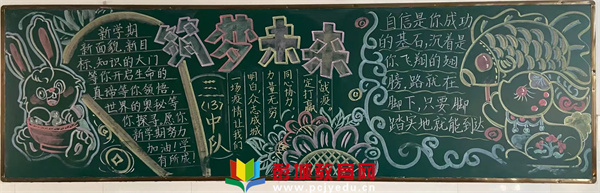 新学期
新面貌,新目
标,知识的大门
等你开启生命的
真谛等你领悟,
世界的奥秘等
你探寻,愿你
新学期努力
加油!学
有所成!
筑梦未来
三(13)中队
场疫情让我们
明白,众志成城
力量无穷!
同心协力,
定打赢
战疫
自信是你成功
的基石,沉着是
你飞翔的翅
膀,路就在
脚下,只要脚
踏实地就能到达
鹏城教育网
www.pcjyedu.cn